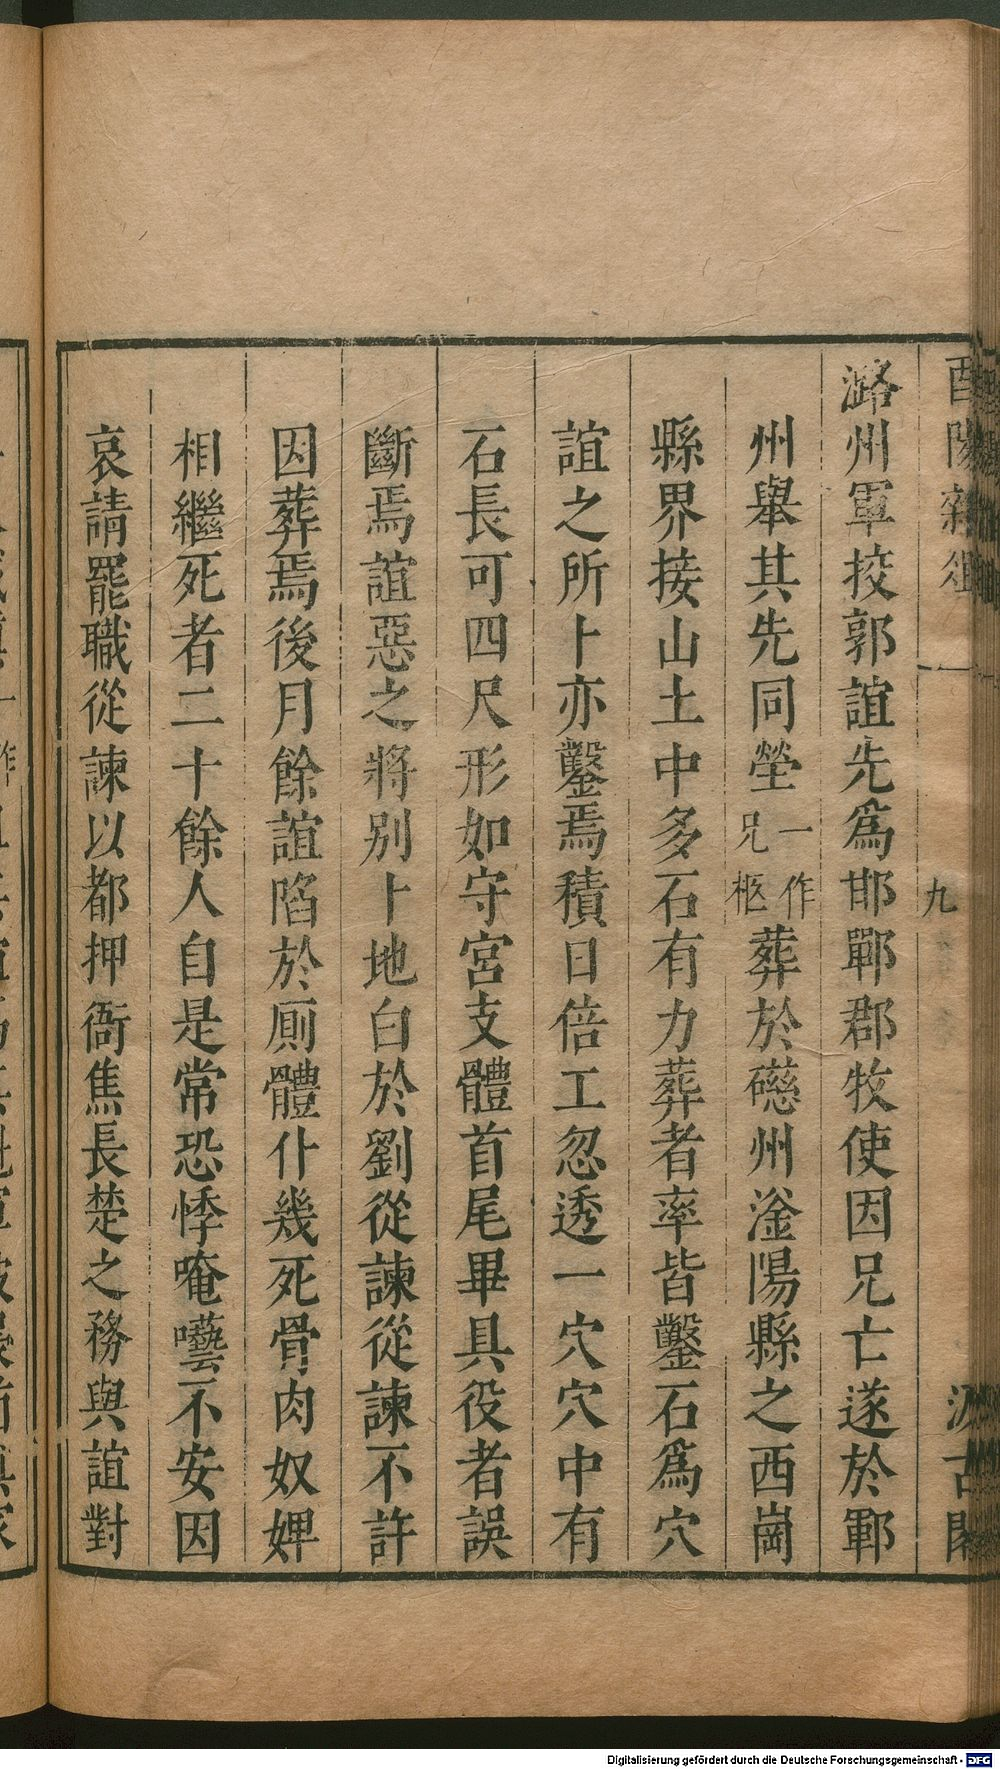 酉陽雜俎
九
汲古閣
潞州軍挍郭誼先爲邯鄲郡牧使因兄亡遂於鄆
州舉其先同塋一作兄柩葬於礠州滏陽縣之西崗
縣界接山土中多石有力葬者率皆鑿石爲穴
誼之所卜亦鑿焉積日倍工忽透一穴穴中有
石長可四尺形如守宮支體首尾畢具役者誤
斷焉誼惡之將別卜地白於劉從諫從諫不許
因葬焉後月餘誼陷於厠體仆幾死骨肉奴婢
相繼死者二十餘人自是常恐悸唵囈不安因
哀請罷職從諫以都押衙焦長楚之務與誼對
Digitalisierung gefördert durch die Deutsche Forschungsgemeinschaft - DFG